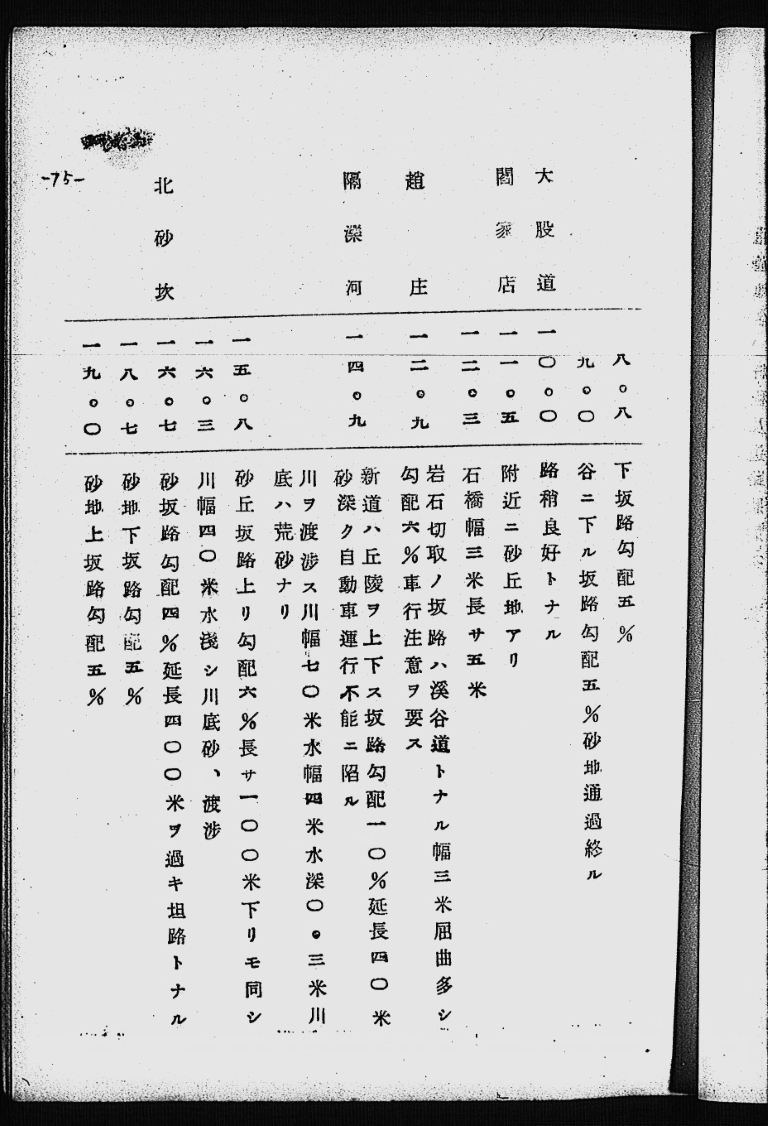 八。八 下坂路勾配五%
九。〇 谷ニ下ル坂路勾配五%砂地通過終ル
大股道 一〇。〇 路稍良好トナル
閻家店 一一。五 附近ニ砂丘地アリ
一二。三 石橋幅三米長サ五米
趙庄 一二。九 岩石切取ノ坂路ハ溪谷道トナル幅三米屈曲多シ
勾配六%車行注意ヲ要ス
隔 河 一四。九 新道ハ丘陵ヲ上下ス坂路勾配一〇%延長四〇米
砂深ク自動車運行不能ニ陥ル
川ヲ渡渉ス川幅七〇米水幅四米水深〇。三米川
底ハ荒砂ナリ
一五。八 砂丘坂路上リ勾配六%長サ一〇〇米下リモ同シ
一六。三 川幅四〇米水淺シ川底砂、渡渉
北砂坎 一六。七 砂坂路勾配四%延長四〇〇米ヲ過キ坦路トナル
一八。七 砂地下坂路勾配五%
一九。〇 砂地上坂路勾配五%
-75-